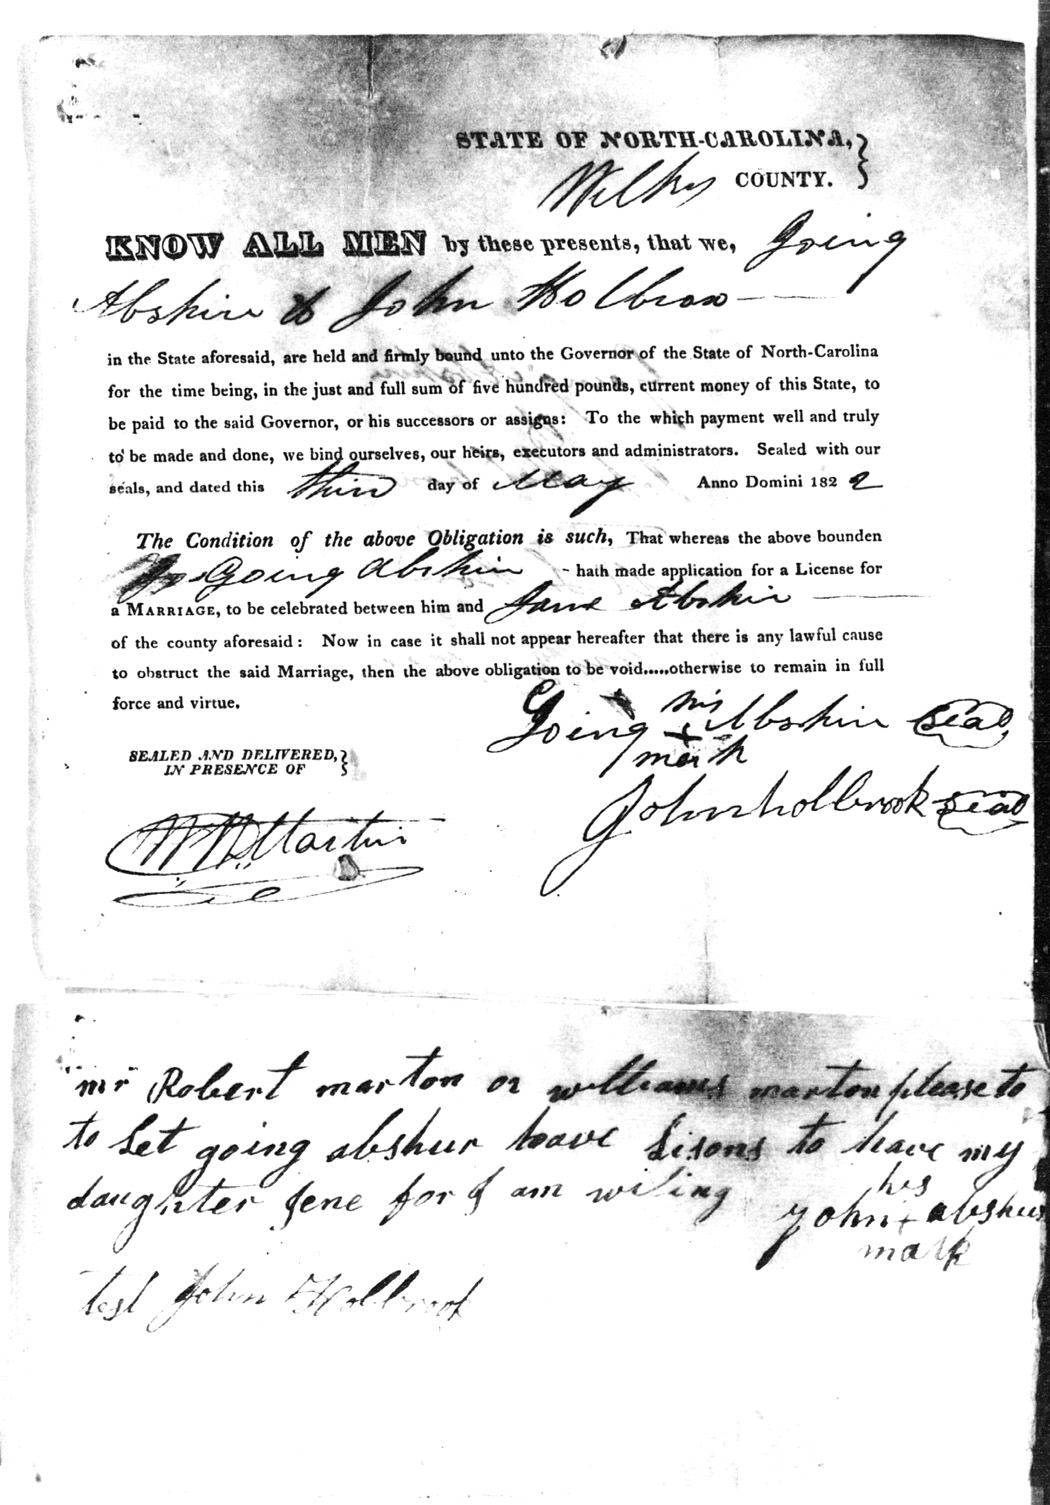 STATE OF NORTH-CAROLINA,
Wilkes COUNTY.
KNOW ALL MEN by these presents, that we, Going
Abshire & John Holbrox
in the State aforesaid, are held and firmly bound unto the Governor of the State of North-Carolina
for the time being, in the just and full sum of five hundred pounds, current money of this State, to
be paid to the said Governor, or his successors or assigns: To the which payment well and truly
to be made and done, we bind ourselves, our heirs, executors and administrators. Sealed with our
seals, and dated this third day of May Anno Domini 1822
The Condition of the above Obligation is such, That whereas the above bounden
Going Abshir hath made application for a License for
a MARRIAGE, to be celebrated between him and Jane Abshir
of the county aforesaid: Now in case it shall not appear hereafter that there is any lawful cause
to obstruct the said Marriage, then the above obligation to be void.....otherwise to remain in full
force and virtue.
his
Going + Abshir seal
mark
SEALED AND DELIVERED,
IN PRESENCE OF
John holbrook seal
Martin
mr Robert marton or williams marton please to
to Let going abshur have Lisons to have my
daughter Jene for I am wiling
his
John + abshur
mark
test John Holbrook